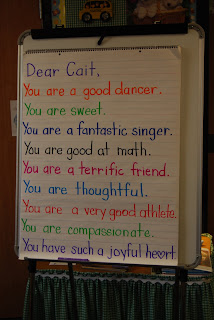 Dear Cait,
You are a good dancer.
You are sweet.
You are a fantastic singer.
You are good at math.
You are a terrific friend.
You are thoughtful.
You are a very good athlete.
You are compassionate.
You have such a joyful heart.